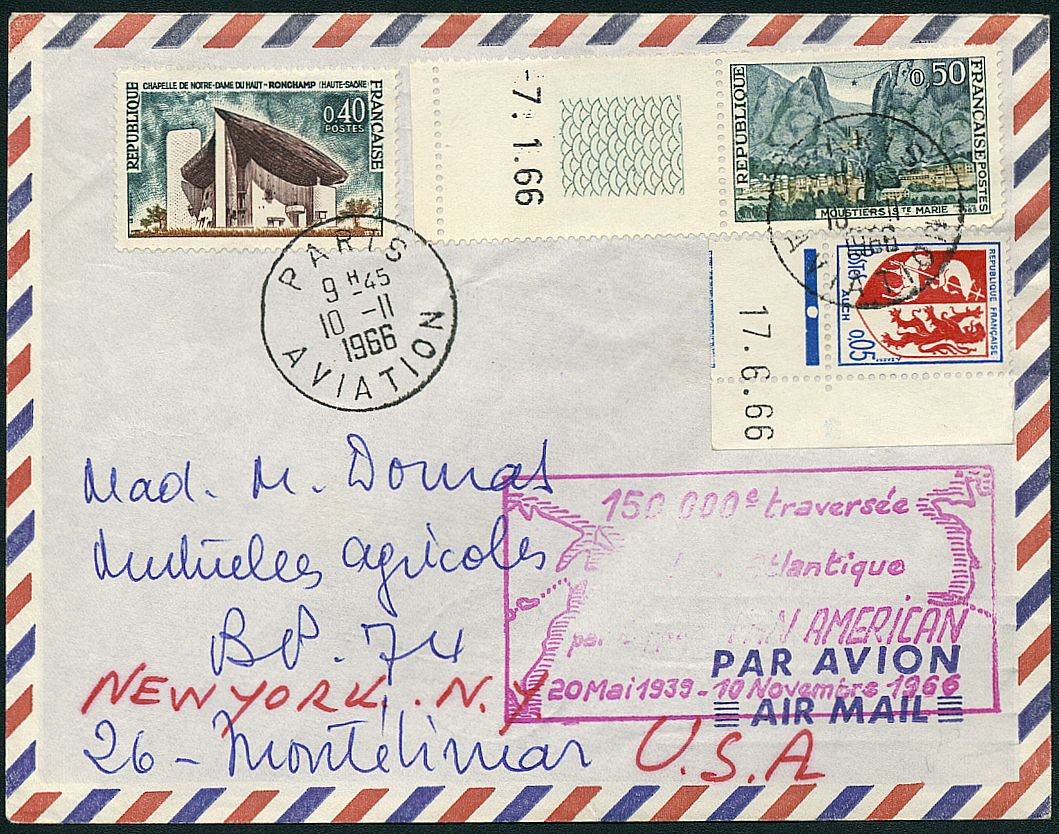 CHAPELLE DE NOTRE-DAME DU HAUT - RONCHAMP (HAUTE-SAÔNE)
REPUBLIQUE
FRANÇAISE
0,40
POSTES
7.1.66
REPUBLIQUE
FRANÇAISE
POSTES
0,50
MOUSTIERS STE MARIE
PARIS
9H-45
10 -11
1966
AVIATION
10
1966
AVIATION
REPUBLIQUE FRANÇAISE
AUCH
0,05
17.6.66
Mad. M. Domas
Mutuelles agricoles
BP. 74
NEW YORK. N.Y
26 - Montélimar
U.S.A
150 000e traversée
Atlantique
PAN AMERICAN
20 Mai 1939 - 10 Novembre 1966
PAR AVION
AIR MAIL